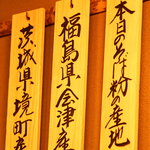 本日のそば粉の産地
福島県会津産
茨城県境町産